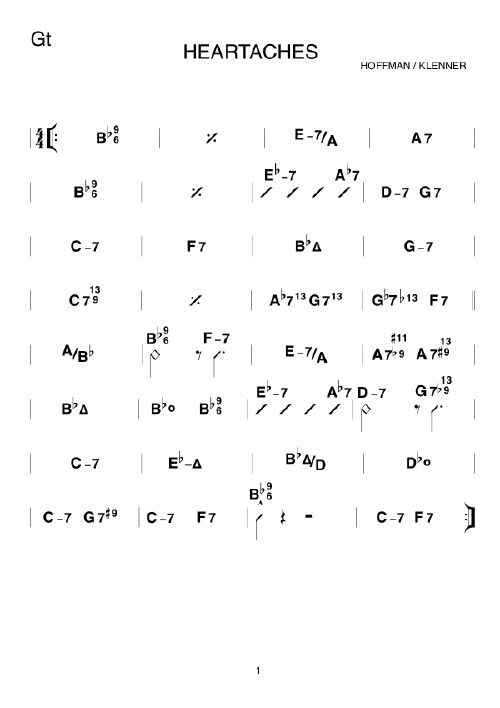 Gt
HEARTACHES
HOFFMAN / KLENNER
4/4 B♭9 6 E–7/A A7
B♭9 6 E♭–7 A♭7 D–7 G7
C–7 F7 B♭Δ G–7
C7 13 9 A♭7 13 G7 13 G♭7♭13 F7
A/B♭ B♭9 6 F–7 E–7/A A7♯11♭9 A7 13♯9
B♭Δ B♭o B♭9 6 E♭–7 A♭7 D–7 G7 13♭9
C–7 E♭–Δ B♭Δ/D D♭o
C–7 G7♯9 C–7 F7 B♭9 6 C–7 F7
1